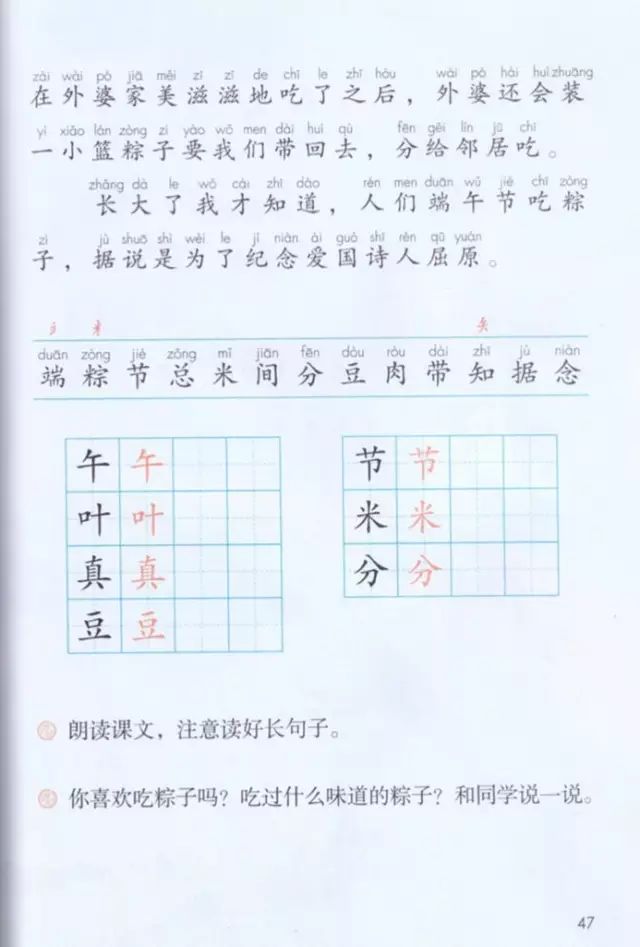 zài wài pó jiā měi zī zī de chī le zhī hòu  wài pó hái huì zhuāng
在外婆家美滋滋地吃了之后，外婆还会装
yì xiǎo lán zòng zi yào wǒ men dài huí qù  fēn gěi lín jū chī
一小篮粽子要我们带回去，分给邻居吃。
zhǎng dà le wǒ cái zhī dào  rén men duān wǔ jié chī zòng
长大了我才知道，人们端午节吃粽
zi  jù shuō shì wèi le jì niàn ài guó shī rén qū yuán
子，据说是为了纪念爱国诗人屈原。
立 米 矢
duān zòng jié zǒng mǐ jiān fēn dòu ròu dài zhī jù niàn
端 粽 节 总 米 间 分 豆 肉 带 知 据 念
午 午 节 节
叶 叶 米 米
真 真 分 分
豆 豆
朗读课文，注意读好长句子。
你喜欢吃粽子吗？吃过什么味道的粽子？和同学说一说。
47